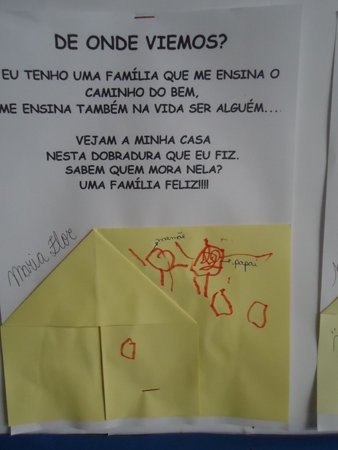 DE ONDE VIEMOS?
EU TENHO UMA FAMÍLIA QUE ME ENSINA O
CAMINHO DO BEM,
ME ENSINA TAMBÉM NA VIDA SER ALGUÉM....
VEJAM A MINHA CASA
NESTA DOBRADURA QUE EU FIZ.
SABEM QUEM MORA NELA?
UMA FAMÍLIA FELIZ!!!!
Maria Flor
mamãe
papai